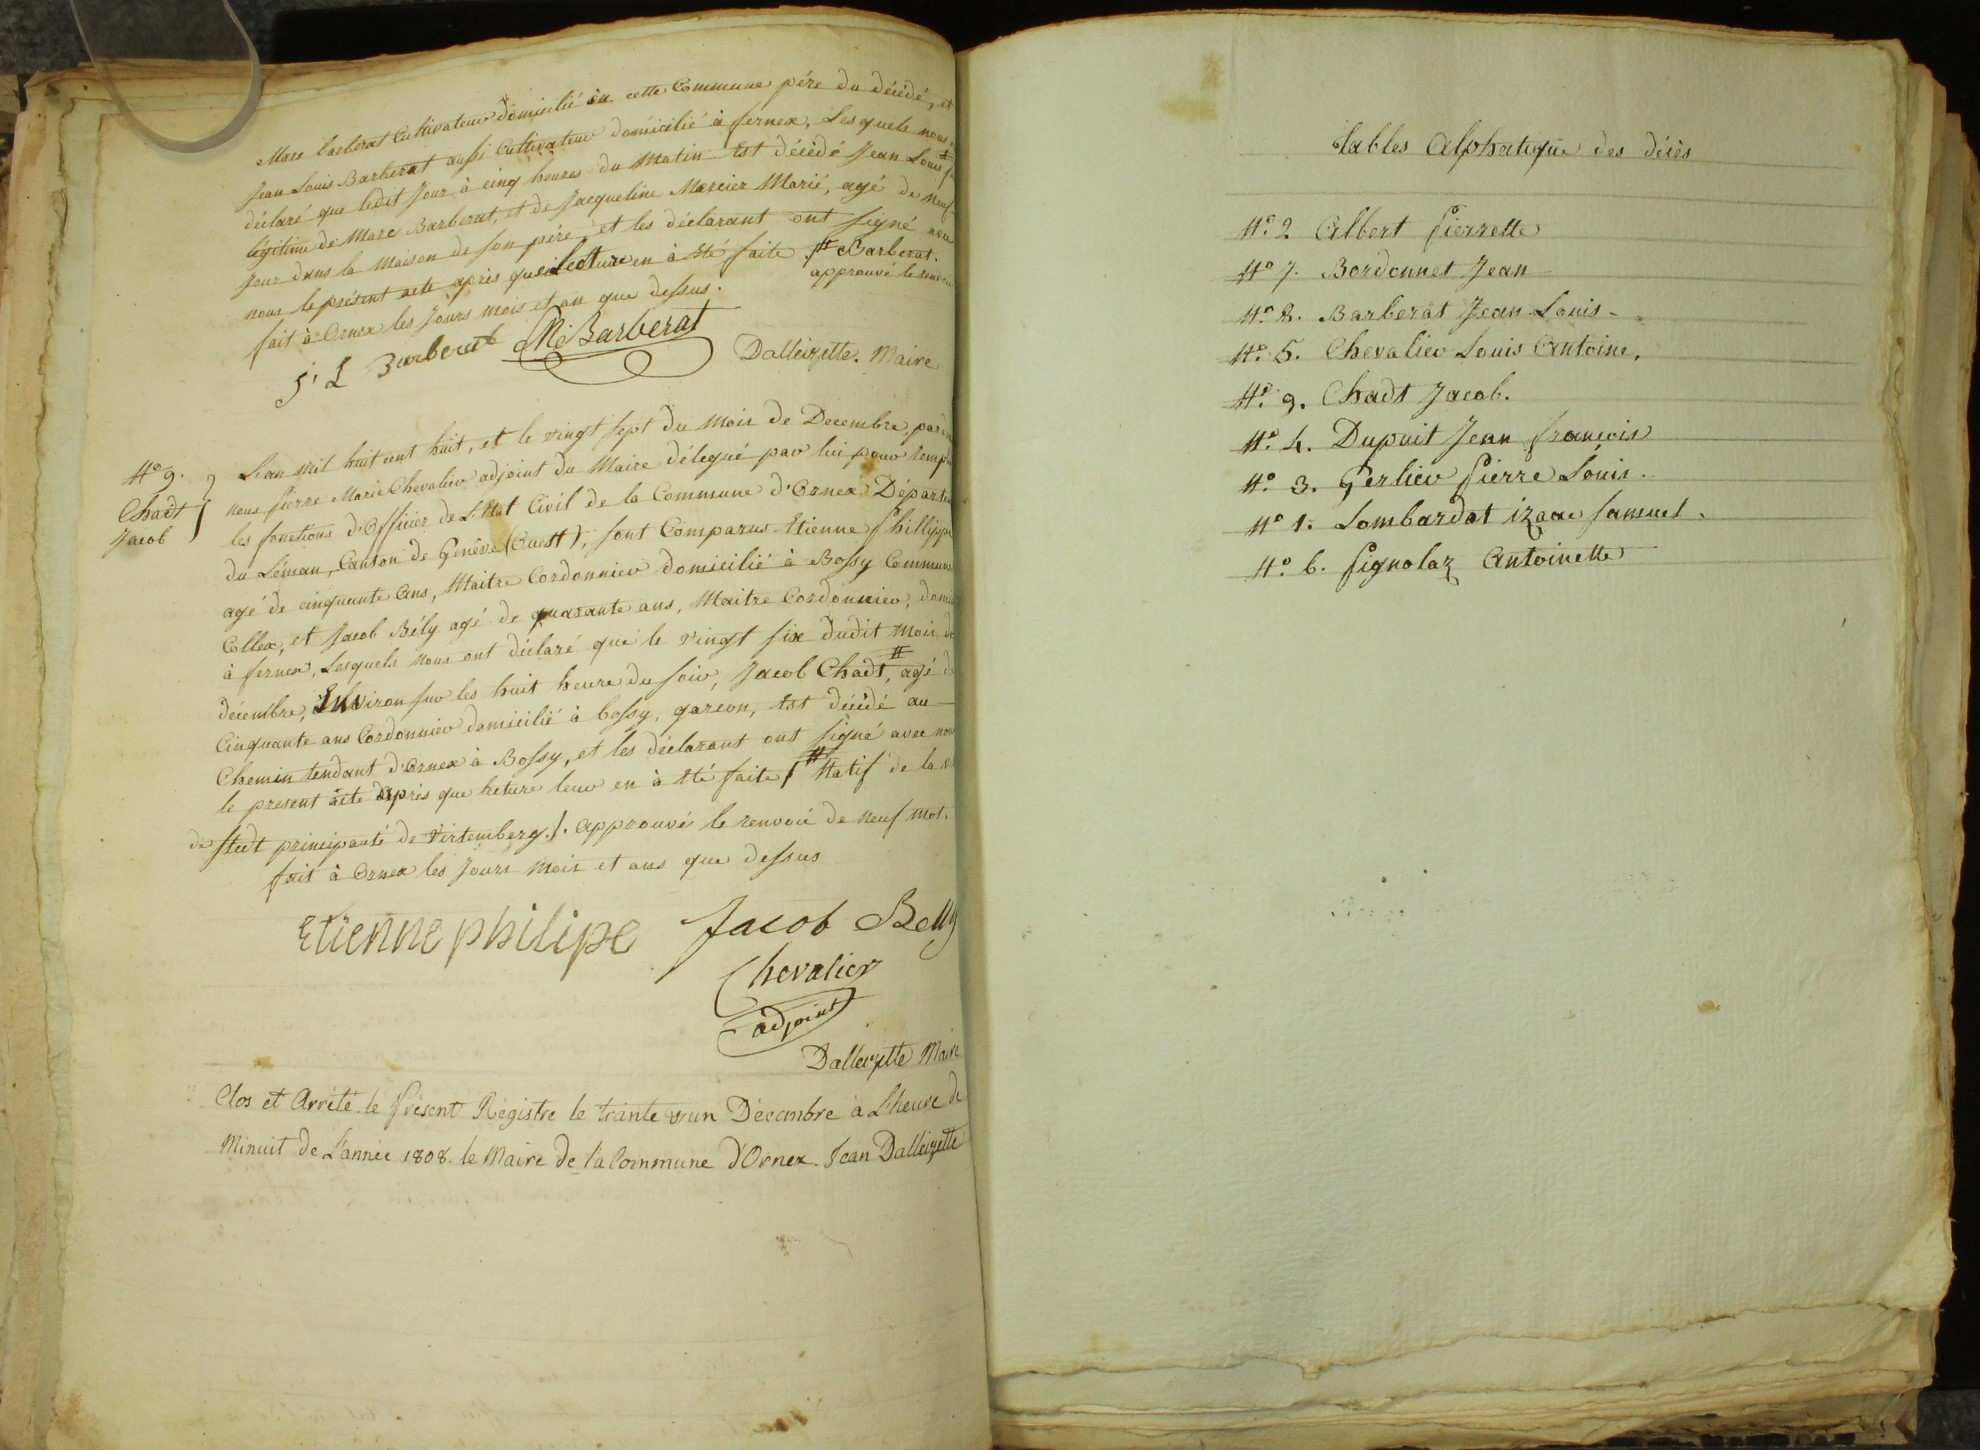 Marc Barberat Cultivateur domicilié en cette Commune pére du décédé, et
Jean Louis Barberat aussi Cultivateur domicilié à fernex, Lesquels nous
déclaré que ledit Jour à cinq heures du Matin Est décédé Jean Louis
légitime de Marc Barberat, et de Jacqueline Mercier Marié, agé de Neuf
Jour dans la Maison de son pére, et les déclarant ont signé avec
nous le présent acte après que Lecture en à été faite # Barberat.
approuvé le renvoi
fait à Ornex les Jours mois et an que dessus.
J. L Barberat M. Barberat
Dalleizette. Maire
N.o 9.
Chadt
Jacob
L'an Mil huit cent huit, et le vingt sept du Mois de Decembre, par
nous pierre Marie Chevalier adjoint du Maire délegué par lui pour remplir
les fonctions d'Officier de L'Etat Civil de la Commune d'Ornex Départ
du Léman, Canton de Genêve (Ouest), sont Comparus Etienne Phillippe
agé de cinquante Ans, Maitre Cordonnier domicilié à Bossy Commune
Collex, et Jacob Bély agé de quarante ans, Maitre Cordonnier, domi
à fernex, Lesquels nous ont déclaré que le vingt six dudit mois de
décembre, Environ sur les huit heure du soir, Jacob Chadt, # agé de
Cinquante ans Cordonnier domicilié à bossy, garcon, Est décédé au
Chemin tendant d'Ornex à Bossy, et les déclarant ont signé avec nous
le present acte après que lecture leur en à été faite / # Natif de la
de studt principauté de Virtemberg./. approuvés le renvoi de neuf mot.
fait à Ornex les Jours Mois et ans que dessus
Etienne philipe Jacob Belly
Chevalier
adjoint
Dalleizette Maire
Clos et Arrêté le Présent Régistre le trante un Décembre à L'heure de
Minuit de L'année 1808. le Maire de la Commune d'Ornex. Jean Dalleizette
Tables Alphatique des décès
N.o 2 Albert Pierrette
N.o 7. Bordonnet Jean
N.o 8. Barberat Jean Louis.
N.o 5. Chevalier Louis Antoine.
N.o 9. Chadt Jacob.
N.o 4. Dupuit Jean francois
N.o 3. Gerlier Pierre Louis.
N.o 1. Lombardat izaac Samuel.
N.o 6. Pignolaz Antoinette